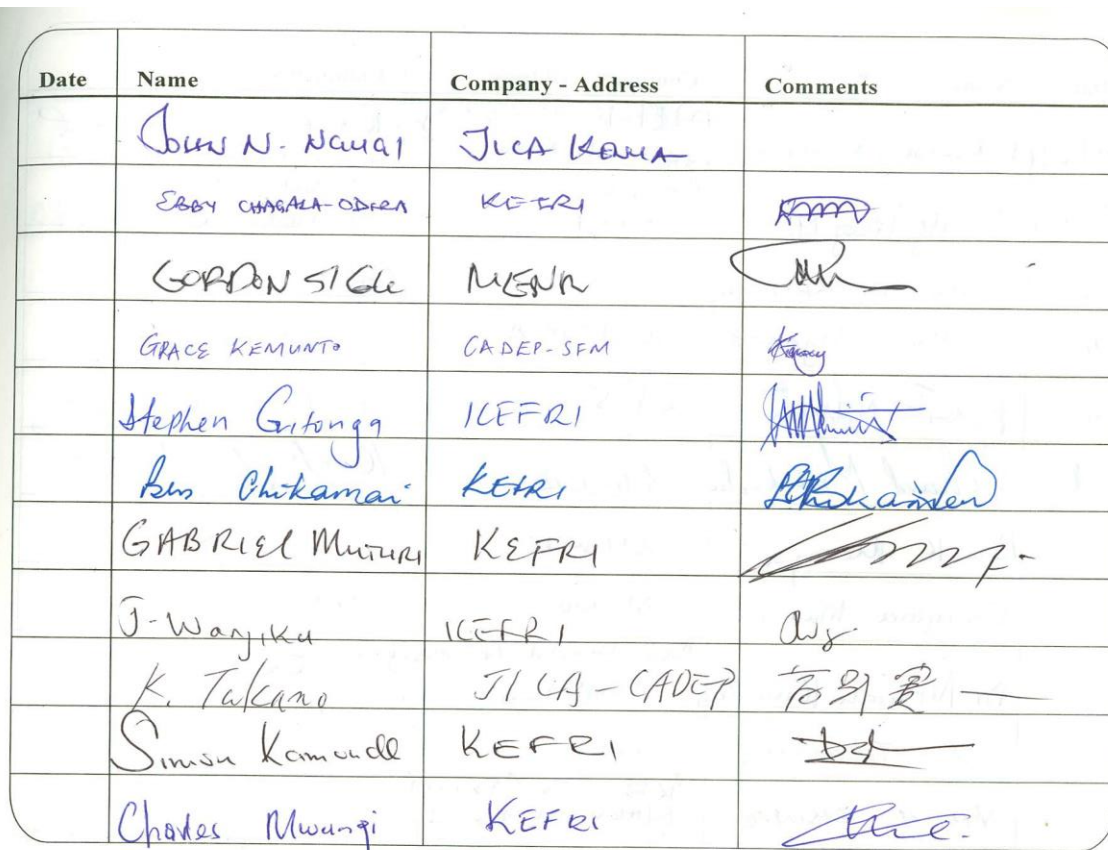 Date Name Company - Address Comments
John N. Ngugi JICA KENYA
EBBY CHAGALA-ODERA KEFRI
GORDON SIGU MENR
GRACE KEMUNTO CADEP-SFM
Stephen Gitonga KEFRI
Ben Chikamai KEFRI
GABRIEL MUTURI KEFRI
J. Wanjiku KEFRI
K. Takano JICA-CADEP 高野憲一
Simon Kamonde KEFRI
Charles Mwangi KEFRI